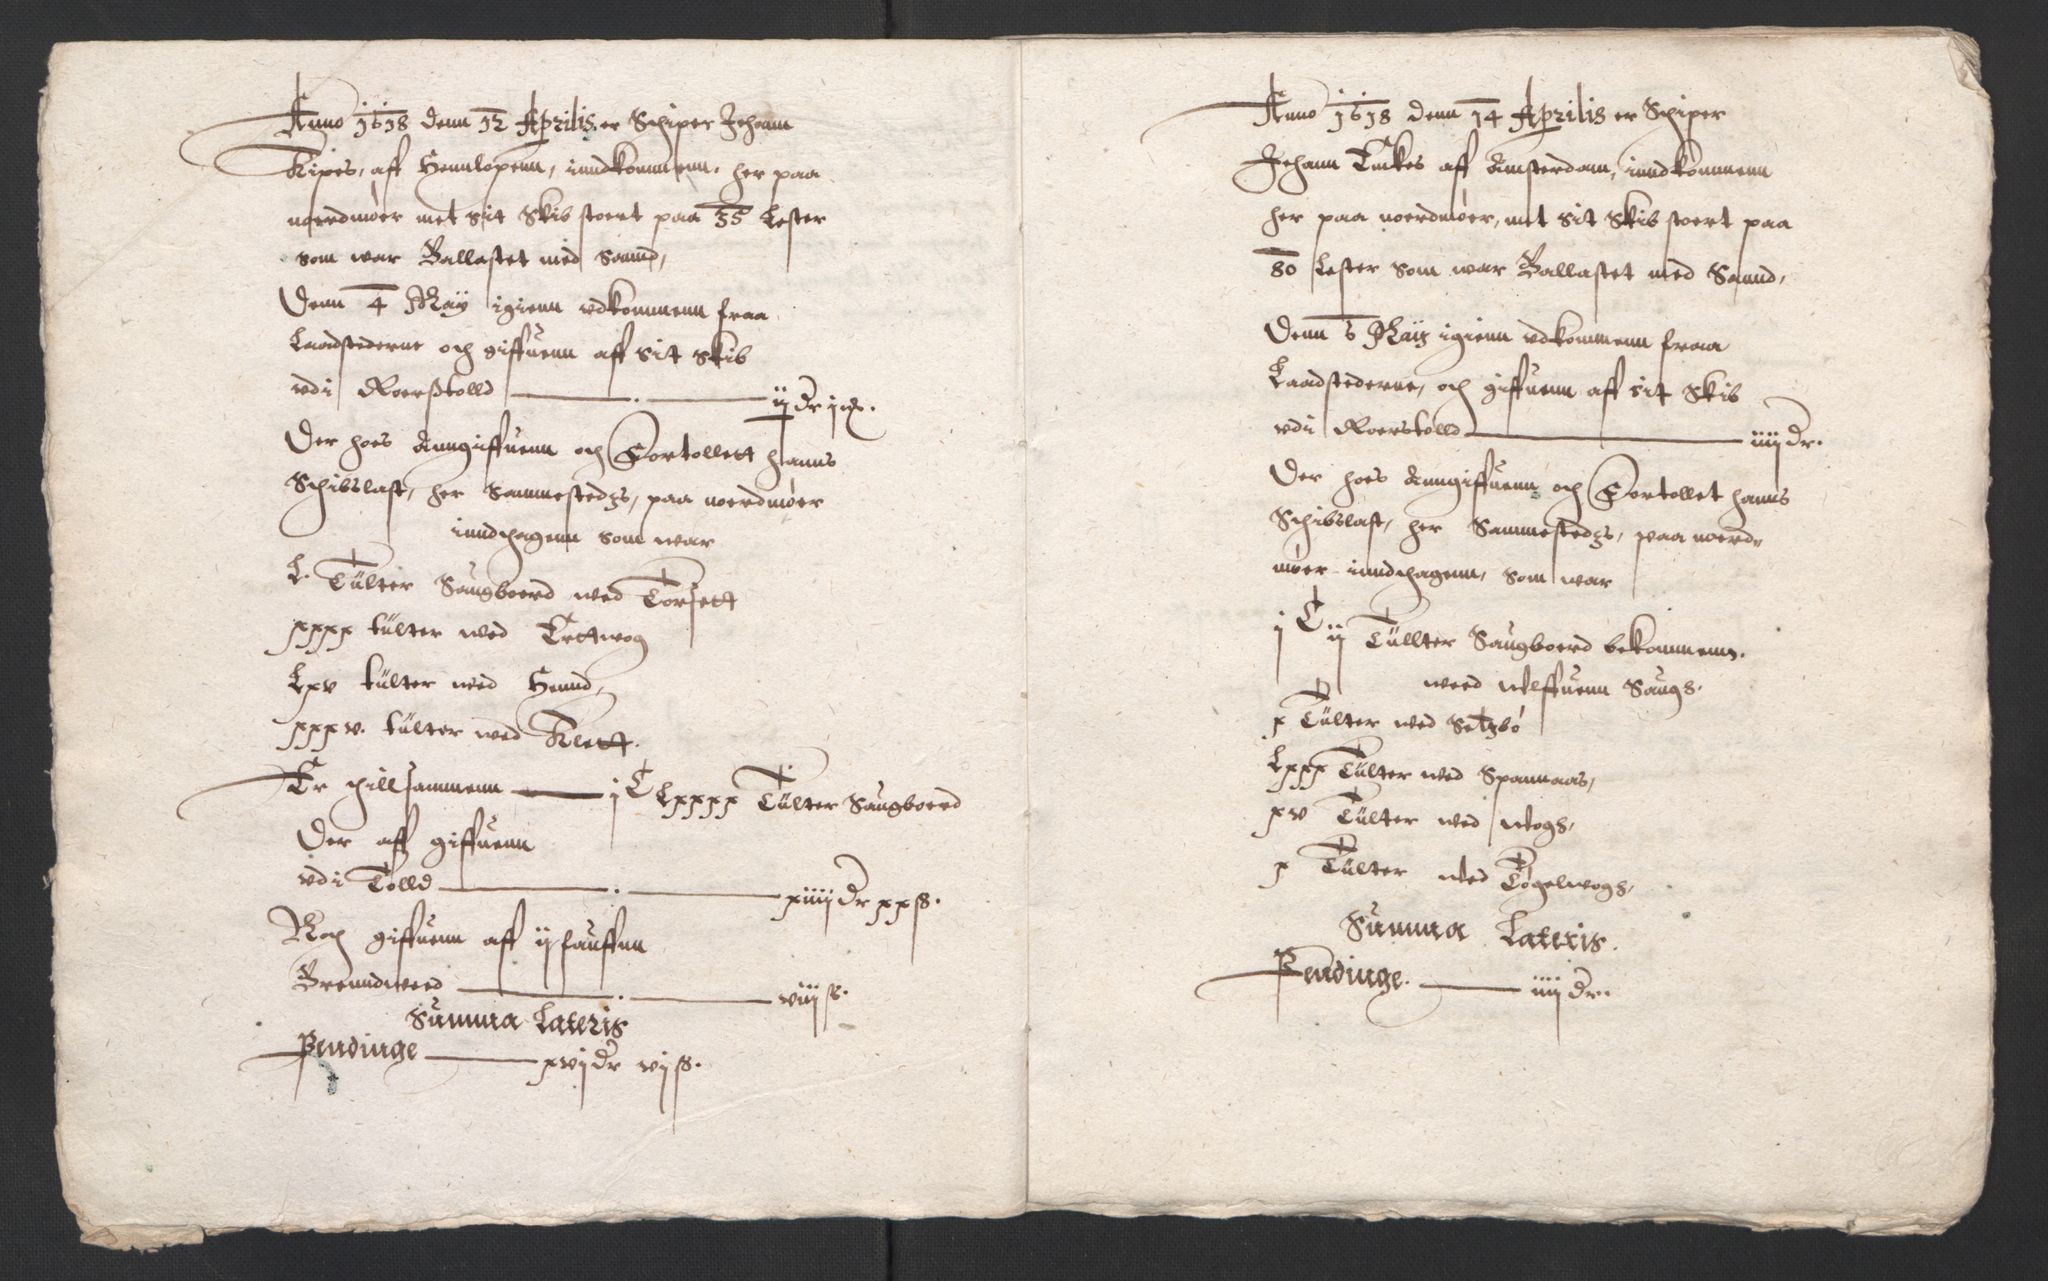 Anno 1618 denn 12 Aprilis er Schiper Johann
Kipes, aff Hennlopenn, inndkommenn her paa
noerdmøer met sit Skib stoert paa 35 Lester
som war Ballastet med Sannd,
Denn 4 Maÿ igienn udkommenn fraa
Laadstederne och giffuenn aff sit Skib
udi Roerstolld — ij dr j ort.
Der hoes Anngiffuenn och Fortollett hanns
Schibslast, her Sammestedzs, paa noerdmøer
inndtagenn som war
L. Tülter Saugboerd wed Torsett
xxxx tülter wed Trettwog
Lxv tülter wed Hennd,
xxxv. tülter wed Klett.
Er thillsammenn — j C Lxxxx Tülter Saugboerd
Der aff giffuenn
udi Tolld — xiiij dr xx ß.
Noch giffuenn aff ij fauffnn
Brenndweed — viij ß.
Summa Lateris
Pendinge — xvij dr vij ß.
Anno 1618 denn 14 Aprilis er Schiper
Johann Tackes aff Amsterdam, inndkommenn
her paa noerdmøer, met sit Skib stoert paa
80 Lester som war Ballastet med Sannd,
Denn 6 Maÿ igienn udkommenn fraa
Laadstederne, och giffuenn aff sit Skib
udi Roerstolld — iiij dr.
Der hoes Anngiffuenn och Fortollet hanns
Schibslast, her Sammestedzs, paa noerd-
møer inndtagenn, som war
j C ij Tüllter Saugboerd bekommenn
weed Ulffuenn Saugs.
x Tülter wed Setzbó
Lxxx Tülter wed Spannaas,
xv Tülter wed Wogs,
x Tülter wed Togelwogs,
Summa Lateris.
Pendinge. — iiij dr.